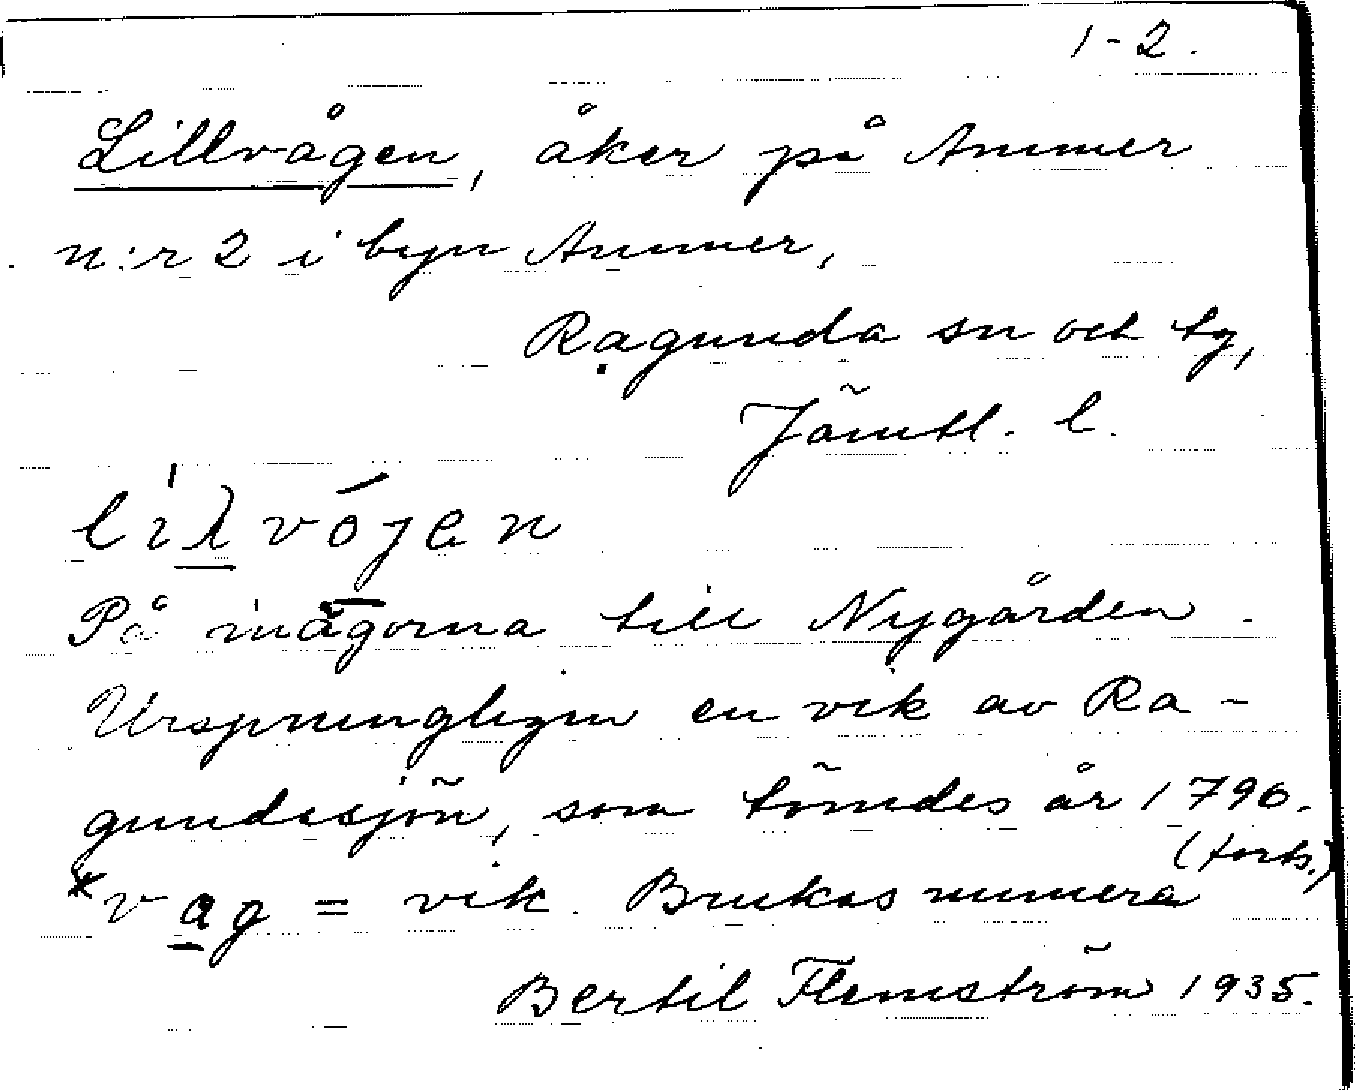 1-2.
Lillvågen, åker på Ammer
n:r 2 i byn Ammer,
Ragunda sn och tg,
Jämtl. l.
På inägorna till Nygården.
Ursprungligen en vik av Ra-
gundasjön, som tömdes år 1796.
(forts.)
*vag = vik. Brukas numera
Bertil Flemström 1935.